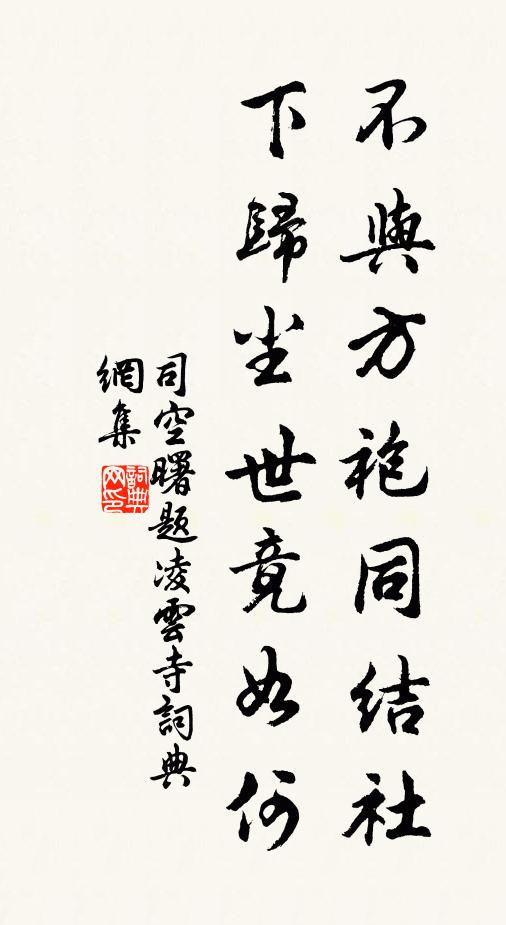 不與方袍同結社
下歸尘世竟如何
司空曙题凌雲寺詞典
網集
詞典網印